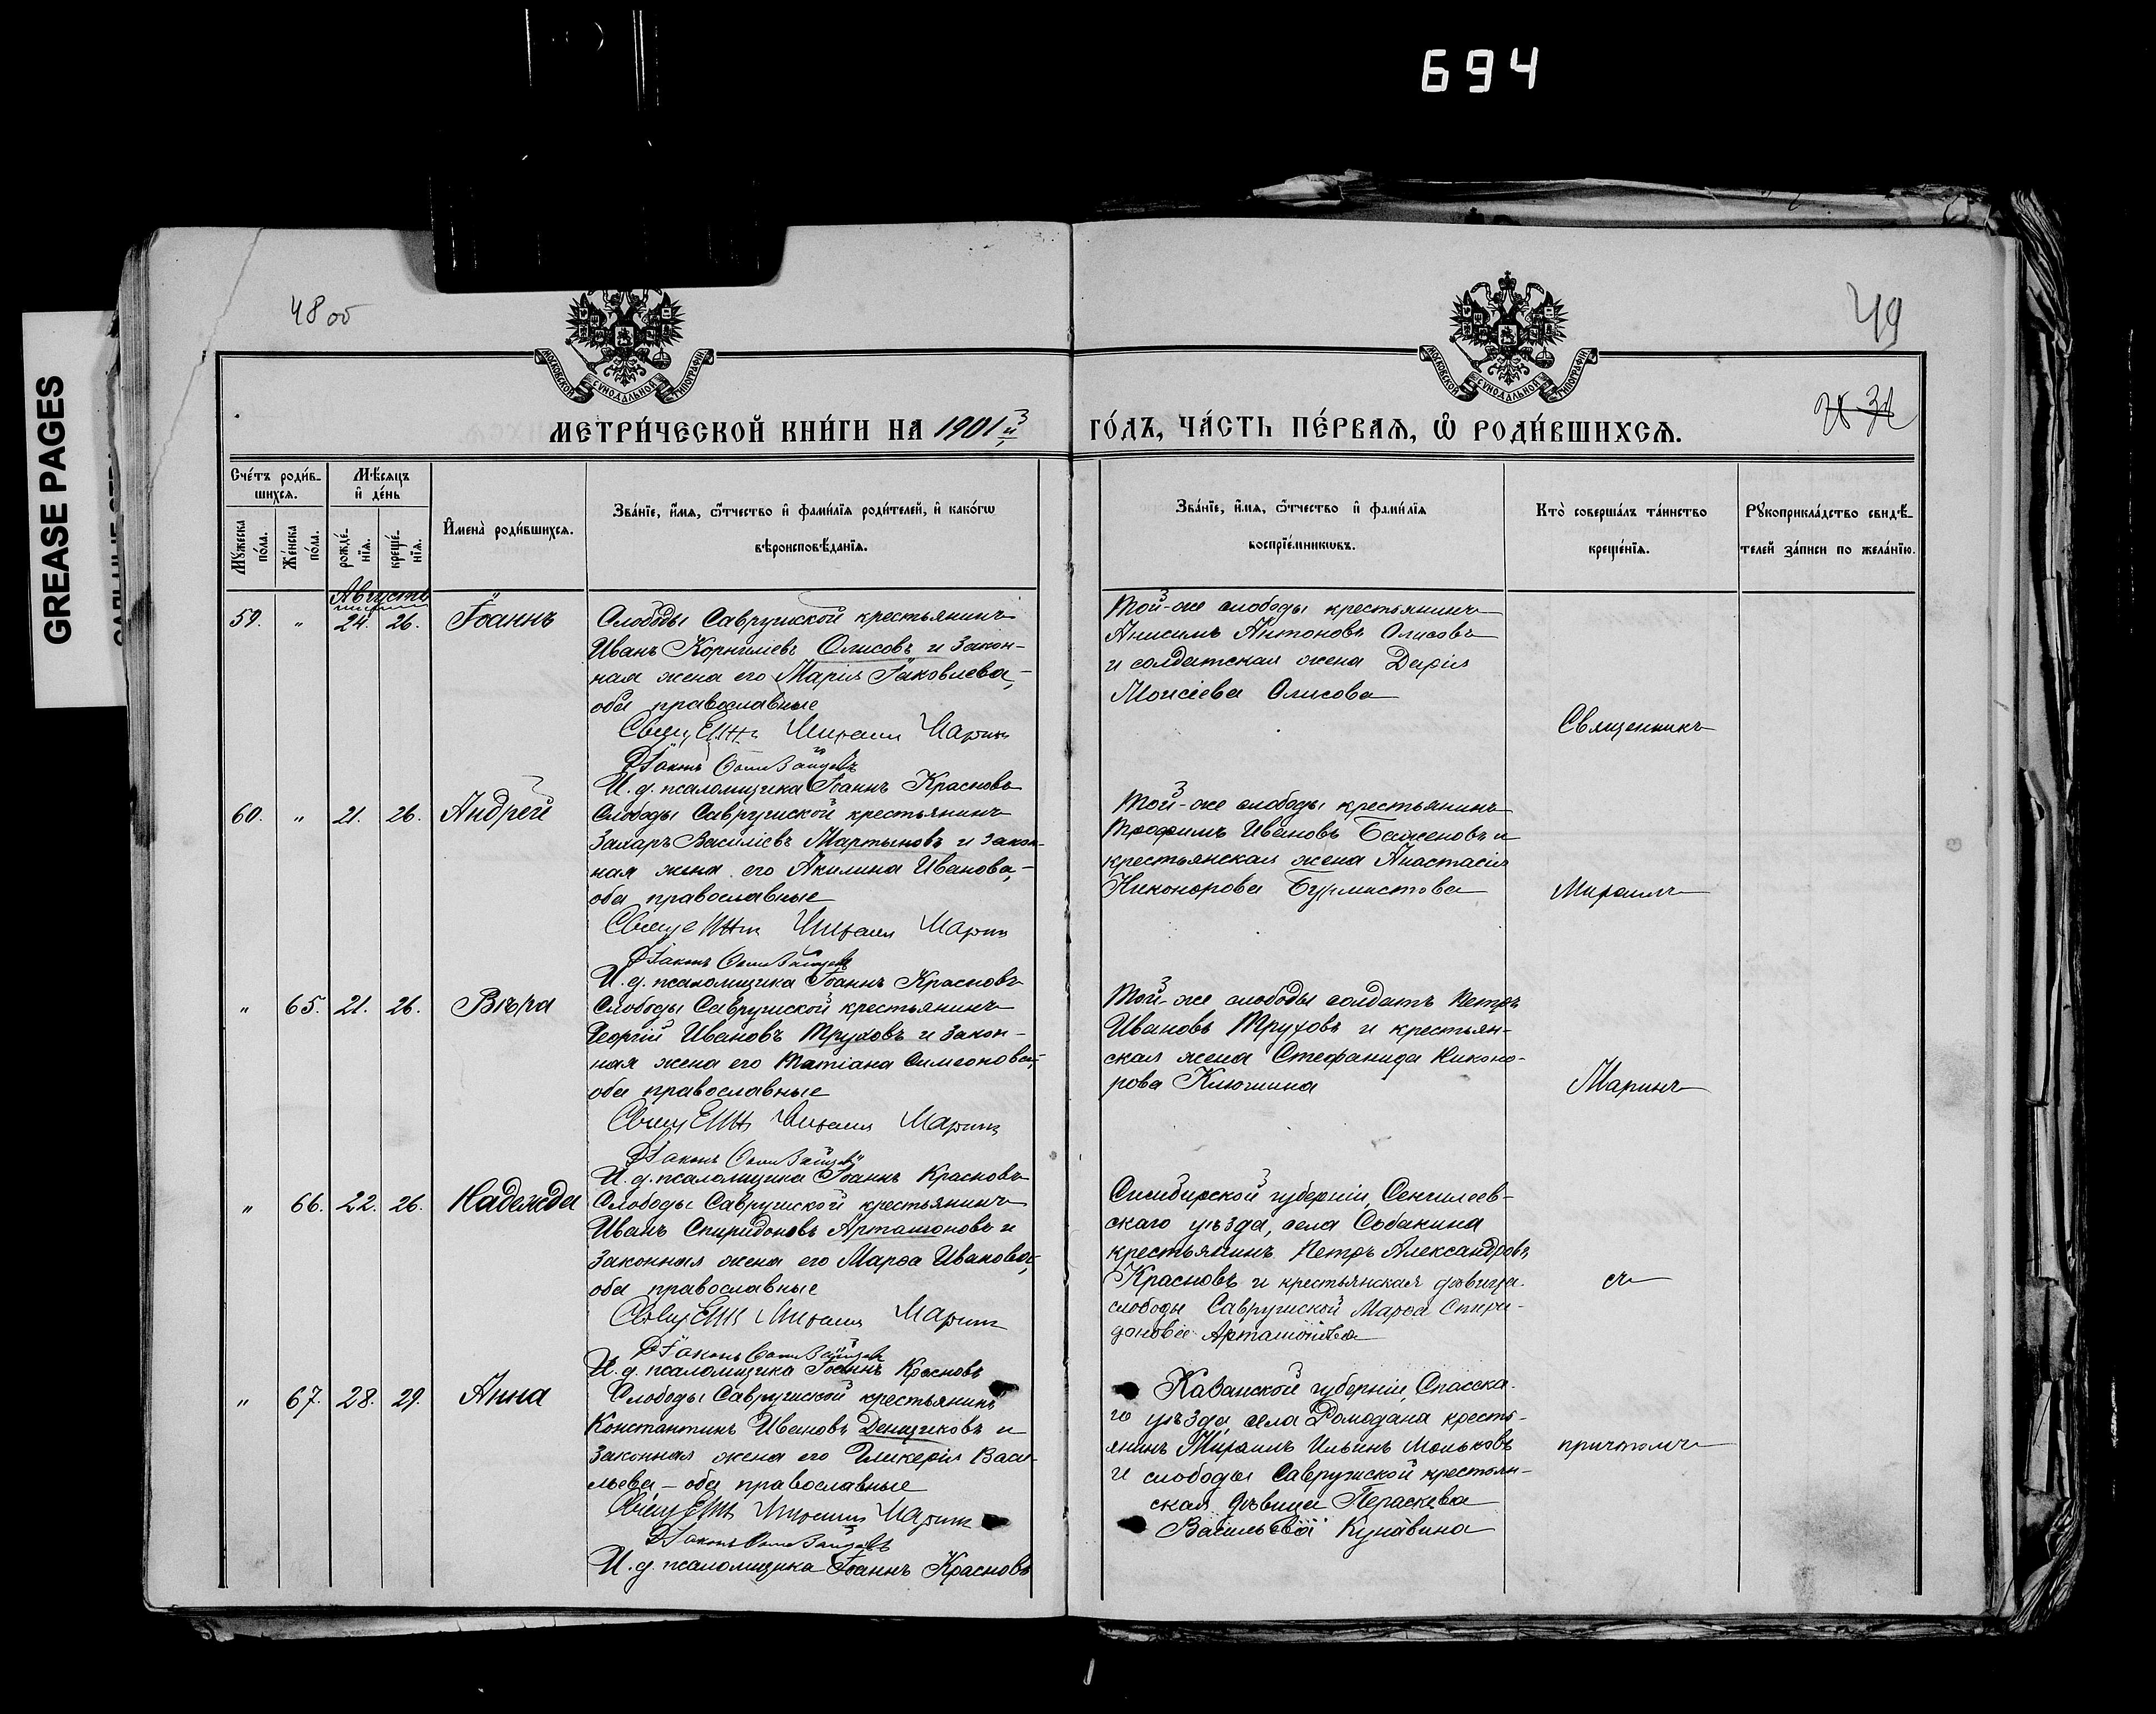 694
GREASE PAGES
48 об
49
МОСКОВСКОЙ СѴНОДАЛЬНОЙ ТИПОГРАФІИ
МОСКОВСКОЙ СѴНОДАЛЬНОЙ ТИПОГРАФІИ
МЕТРИ́ЧЕСКОЙ КНИ́ГИ НА 1901й
ГО́ДЪ, ЧА́СТЬ ПЕ́РВАѦ, Ѡ҆ РОДИ́ВШИХСѦ.
Сче́тъ роди́в-
шихсѧ.
Мꙋжеска по́ла.
Же́нска по́ла.
Мѣ́сяцъ
и҆ де́нь
рожде́-
нїѧ.
креще́-
нїѧ.
И҆мена̀ роди́вшихсѧ.
Зва́нїе, и҆́мѧ, ѻ҆́тчество и҆ фами́лїѧ роди́телей, и҆ како́гѡ
вѣроисповѣ́данїѧ.
Зва́нїе, и҆́мѧ, ѻ҆́тчество и҆ фами́лїѧ
воспрїе́мникѡвъ.
Кто̀ соверша́лъ та́инство
креще́нїѧ.
Рꙋкоприкла́дство свидѣ́-
телей за́писи по жела́нїю.
Августъ
59. " 24. 26. Іоаннъ
Слободы Савругиской крестьянинъ
Иванъ Корниліевъ Олисовъ и закон-
ная жена его Марія Іаковлева,-
оба православные
Священ Михаилъ Маринъ
Діаконъ
И.д. псаломщика Іоаннъ Красновъ
Той-же слободы крестьянинъ
Анисимъ Антоновъ Олисовъ
и солдатская жена Дарія
Моисіева Олисова
Священникъ
60. " 21. 26. Андрей
Слободы Савругиской крестьянинъ
Захаръ Василіевъ Мартыновъ и закон-
ная жена его Акилина Иванова,-
оба православные
Священ Михаилъ Маринъ
Діаконъ
И.д. псаломщика Іоаннъ Красновъ
Той-же слободы крестьянинъ
Трофимъ Ивановъ Баженовъ и
крестьянская жена Анастасія
Никонорова Бурмистова
Михаилъ
" 65. 21. 26. Вѣра
Слободы Савругиской крестьянинъ
Георгій Ивановъ Труховъ и закон-
ная жена его Татіана Симеонова,-
оба православные
Священ Михаилъ Маринъ
Діаконъ
И.д. псаломщика Іоаннъ Красновъ
Той-же слободы солдатъ Петръ
Ивановъ Труховъ и крестьян-
ская жена Стефанида Никоно-
рова Ключина
Маринъ
" 66. 22. 26. Надежда
Слободы Савругиской крестьянинъ
Иванъ Спиридоновъ Арташоновъ и
законная жена его Марѳа Иванова,-
оба православные
Священ Михаилъ Маринъ
Діаконъ
И.д. псаломщика Іоаннъ Красновъ
Симбирской губерніи, Сенгилеев-
скаго уѣзда, села Собакина
крестьянинъ Петръ Александровъ
Красновъ и крестьянская дѣвица
слободы Савругиской Марѳа Спири-
донова Арташонова
съ
" 67. 28. 29. Анна
Слободы Савругиской крестьянинъ
Константинъ Ивановъ Денщиковъ и
законная жена его Гликерія Васи-
льева,- оба православные
Священ Михаилъ Маринъ
Діаконъ
И.д. псаломщика Іоаннъ Красновъ
Казанской губерніи, Спасска-
го уѣзда села Ромодана кресть-
янинъ Михаилъ Ильинъ Моньковъ
и слободы Савругиской крестьян-
ская дѣвица Параскева
Васильева Кунавина
причтомъ